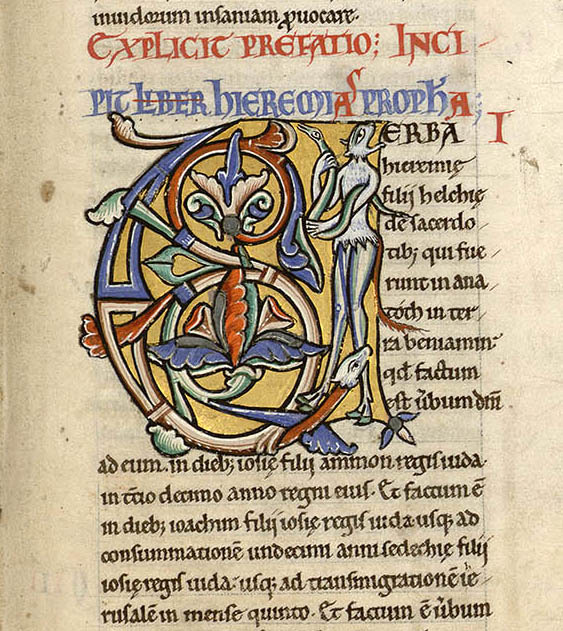 inuidorum insaniam ꝓuocare.
EXPLICIT PREFATIO; INCI
PIT LIBER HIEREMIAS PROPHA; I
VERBA
hieremię
filij helchię
de sacerdo
tib; qui fue
runt in ana
toth in ter
ra beniamin
qđ factum
est ūbum dn̄i
ad eum. in dieb; iosię filij ammon regis iuda.
in t̄cio decimo anno regni eius. Et factum ē
in dieb; ioachim filij iosię regis iuda usq; ad
consummationē undecimi anni sedechię filij
iosię regis iuda. usq; ad transmigrationē ie
rusalē in mense quinto. Et factum ē ūbum